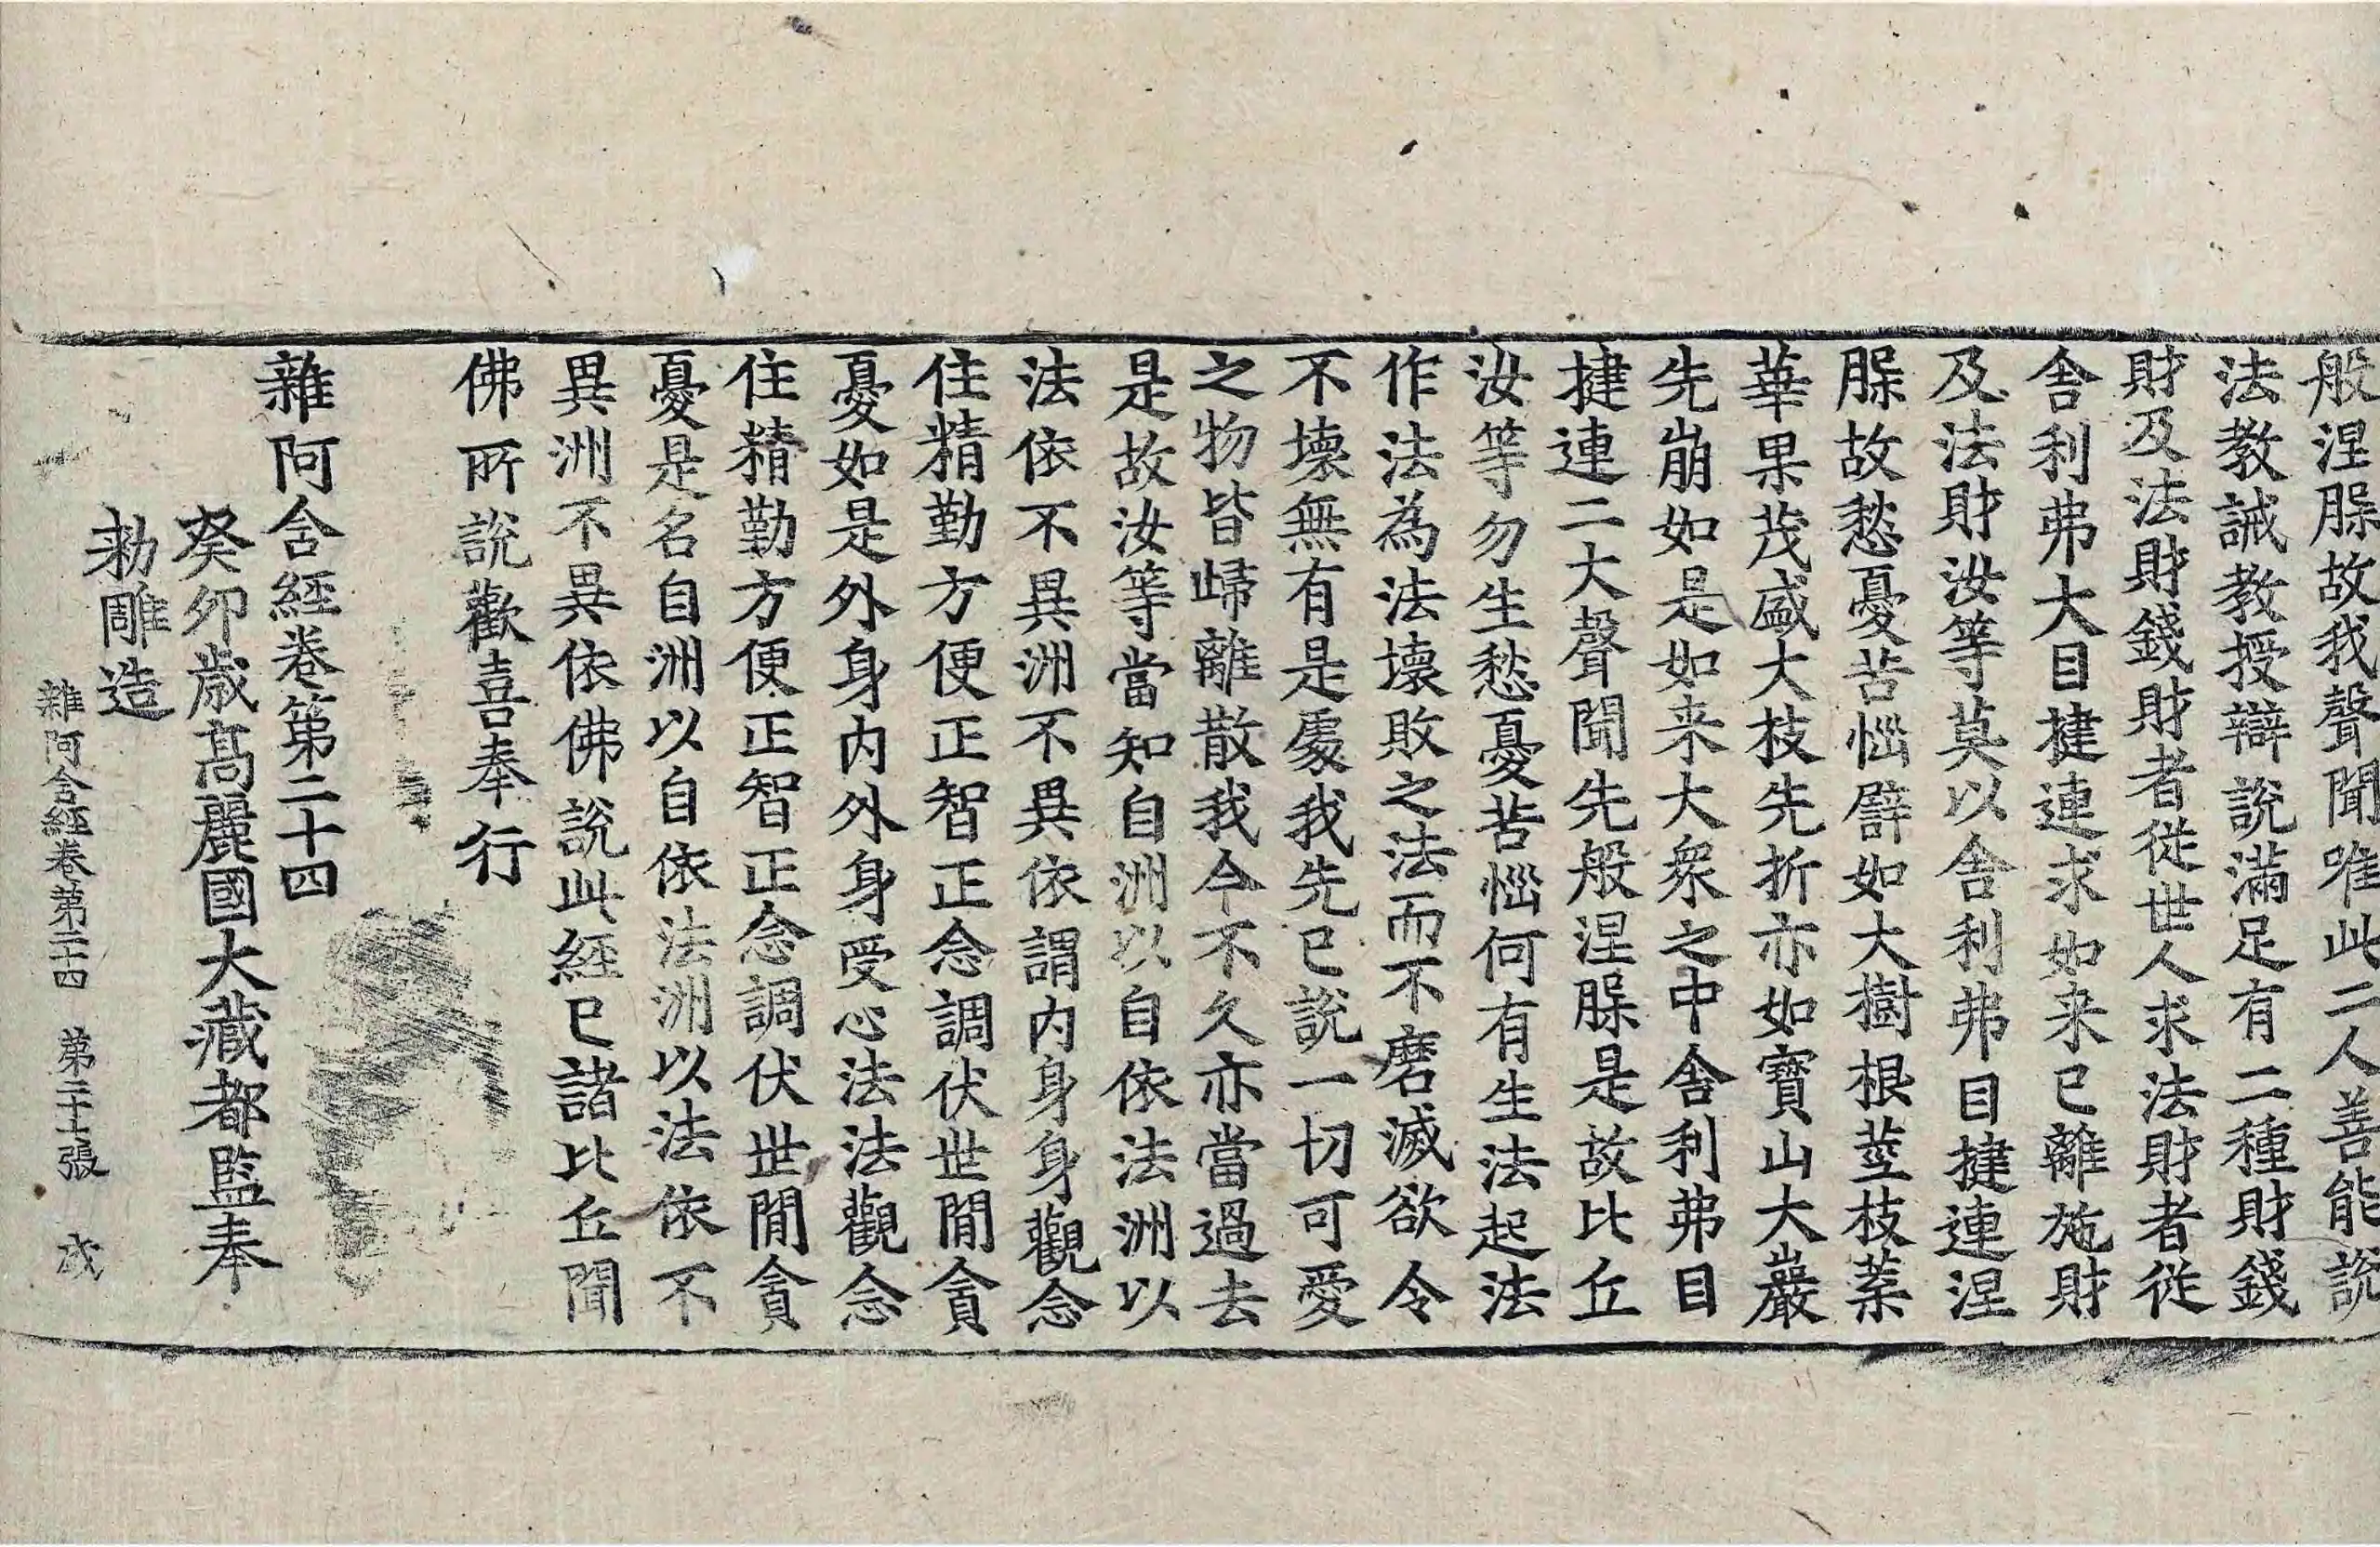 般涅槃故我聲聞唯此二人善能說
法教誡教授辯說滿足有二種財錢
財及法財錢財者從世人求法財者從
舍利弗大目揵連求如来已離施財
及法財汝等莫以舍利弗目揵連涅
槃故愁憂苦惱譬如大樹根莖枝葉
華果茂盛大枝先折亦如寶山大巖
先崩如是如来大衆之中舍利弗目
揵連二大聲聞先般涅槃是故比丘
汝等勿生愁憂苦惱何有生法起法
作法為法壞敗之法而不磨滅欲令
不壞無有是處我先已說一切可愛
之物皆歸離散我今不久亦當過去
是故汝等當知自洲以自依法洲以
法依不異洲不異依謂内身身觀念
住精勤方便正智正念調伏世閒貪
憂如是外身内外身受心法法觀念
住精勤方便正智正念調伏世閒貪
憂是名自洲以自依法洲以法依不
異洲不異依佛說此經已諸比丘聞
佛所說歡喜奉行
雜阿含經卷第二十四
癸卯歲高麗國大藏都監奉
勅雕造
雜阿含經卷第二十四 第二十七張 成